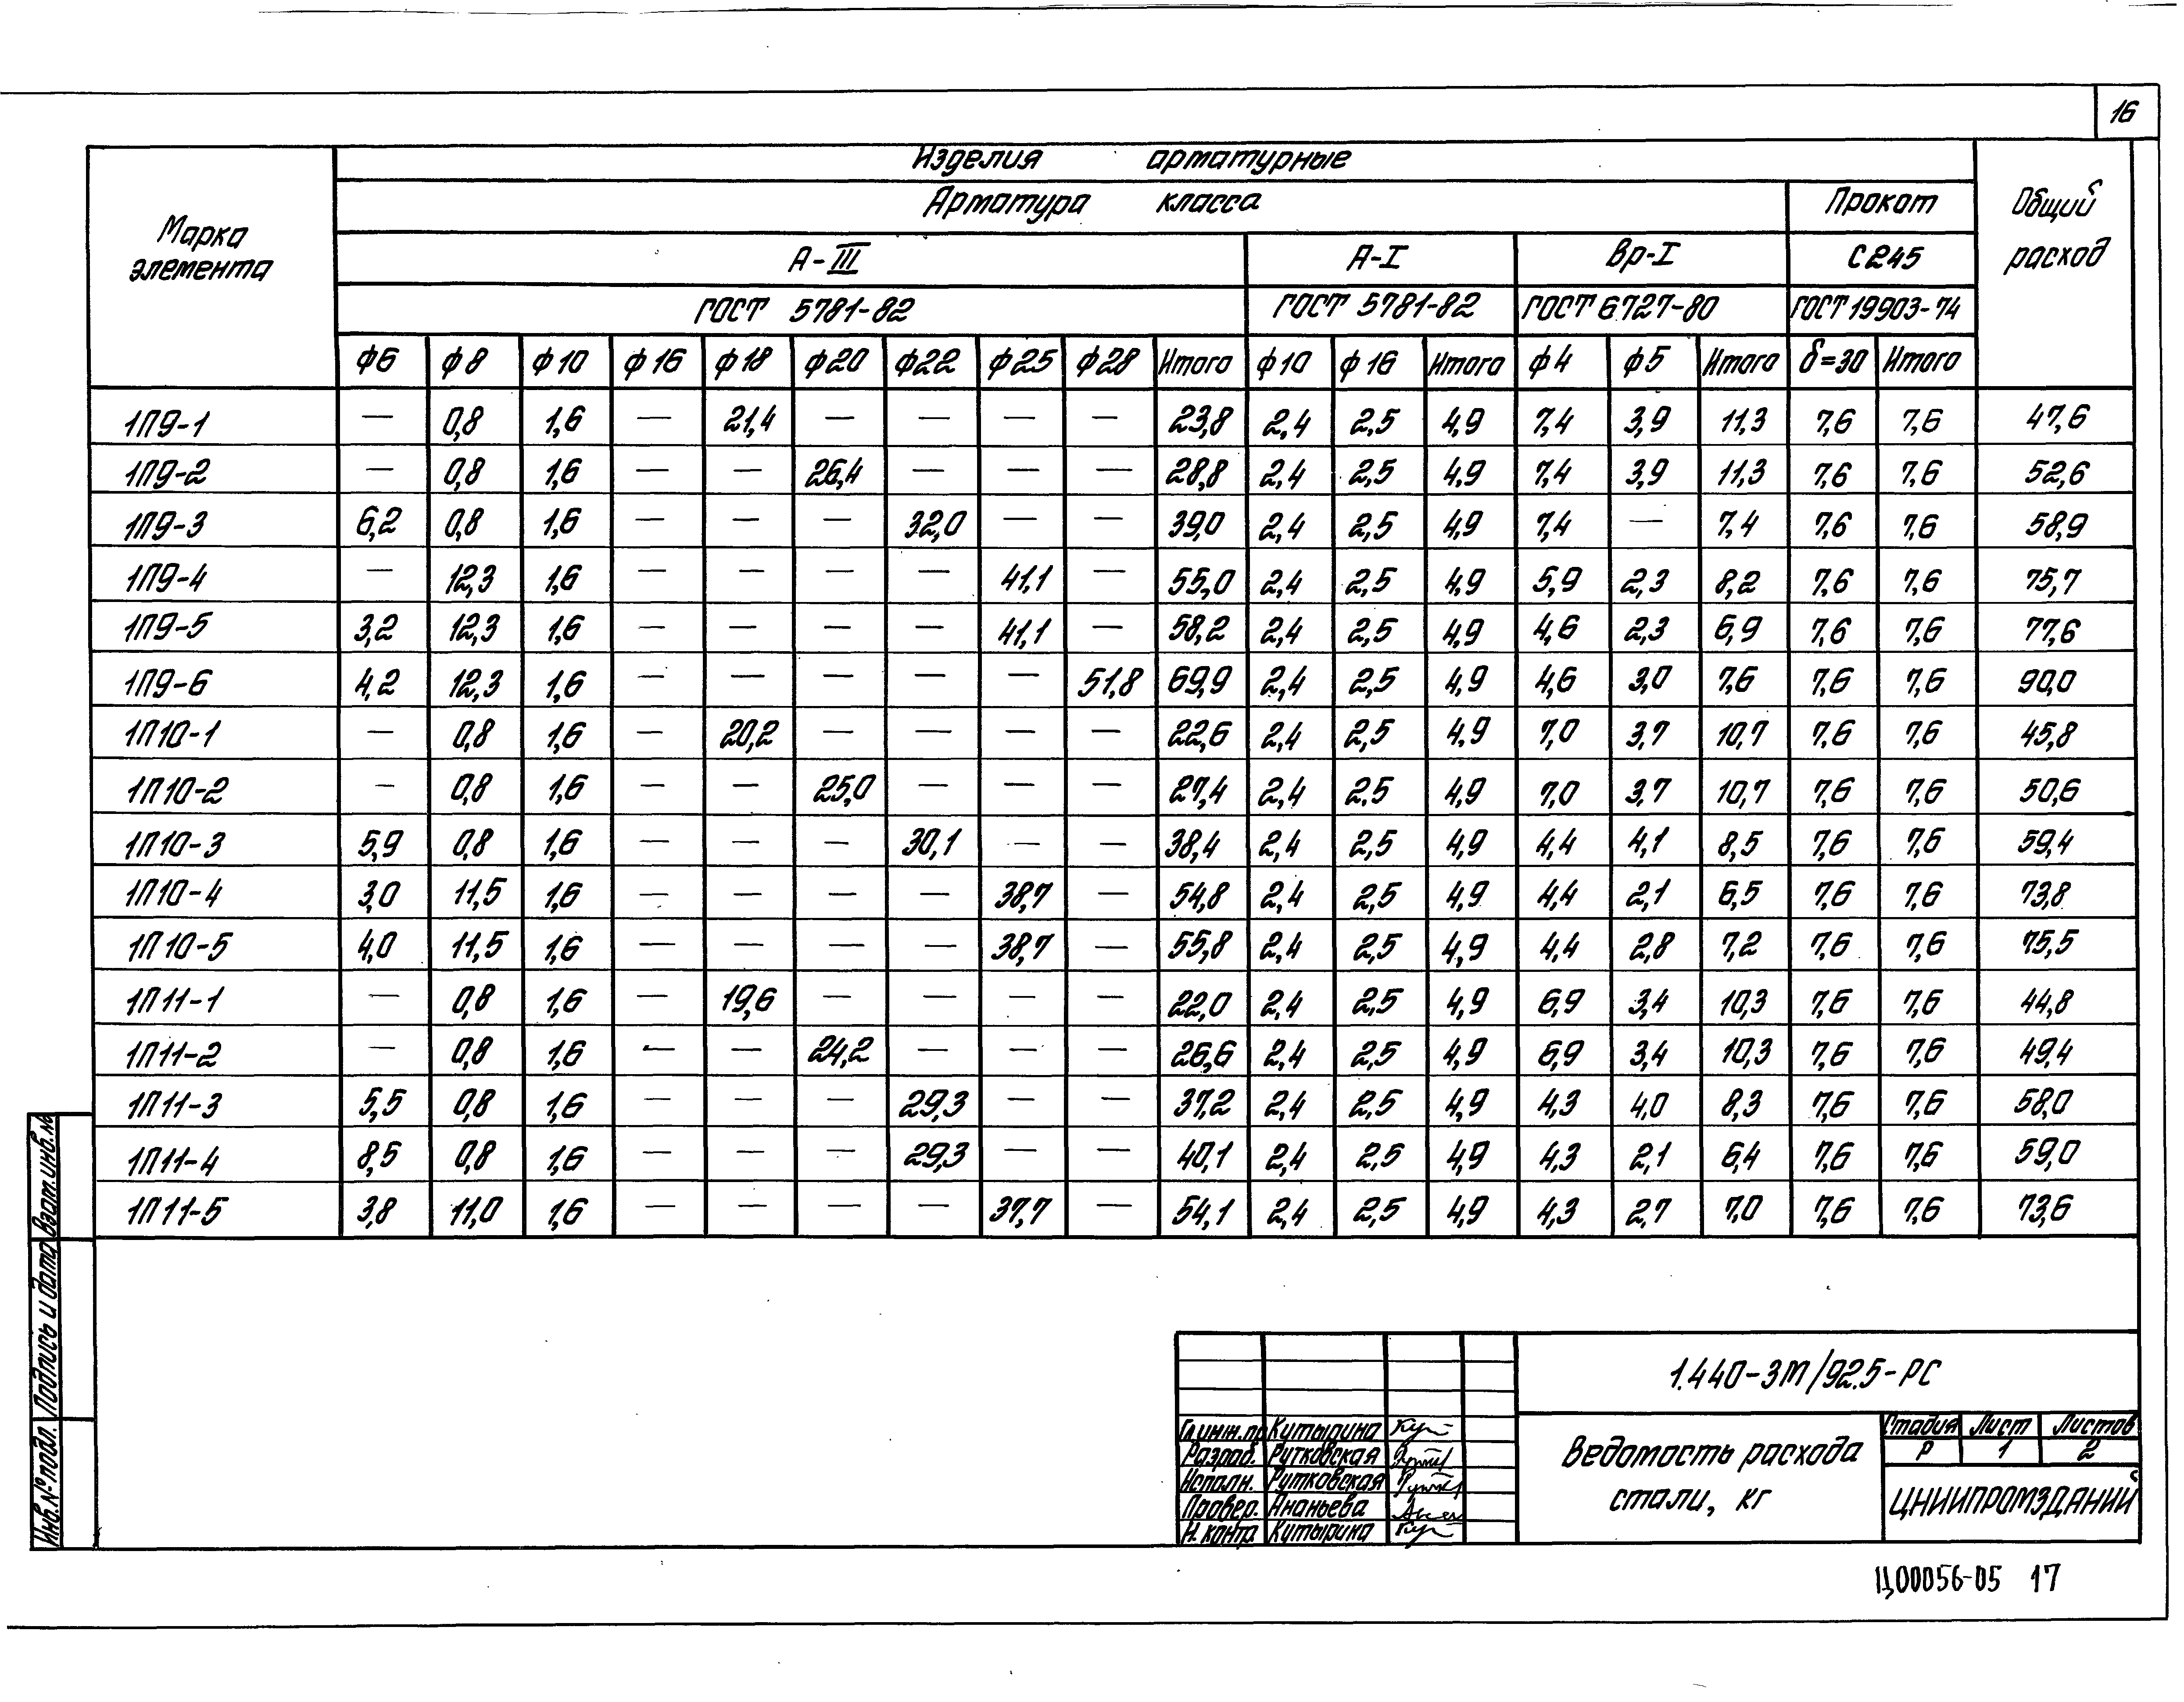 16
Изделия арматурные
Арматура класса
Прокат
Общий расход
Марка элемента
А-III
А-I
Вр-I
С245
ГОСТ 5781-82
ГОСТ 5781-82
ГОСТ 6727-80
ГОСТ 19903-74
ф6 ф8 ф10 ф16 ф18 ф20 ф22 ф25 ф28 Итого ф10 ф16 Итого ф4 ф5 Итого δ=30 Итого
1П9-1 — 0,8 1,6 — 21,4 — — — — 23,8 2,4 2,5 4,9 7,4 3,9 11,3 7,6 7,6 47,6
1П9-2 — 0,8 1,6 — — 26,4 — — — 28,8 2,4 2,5 4,9 7,4 3,9 11,3 7,6 7,6 52,6
1П9-3 6,2 0,8 1,6 — — — 32,0 — — 39,0 2,4 2,5 4,9 7,4 — 7,4 7,6 7,6 58,9
1П9-4 — 12,3 1,6 — — — — 41,1 — 55,0 2,4 2,5 4,9 5,9 2,3 8,2 7,6 7,6 75,7
1П9-5 3,2 12,3 1,6 — — — — 41,1 — 58,2 2,4 2,5 4,9 4,6 2,3 6,9 7,6 7,6 77,6
1П9-6 4,2 12,3 1,6 — — — — — 51,8 69,9 2,4 2,5 4,9 4,6 3,0 7,6 7,6 7,6 90,0
1П10-1 — 0,8 1,6 — 20,2 — — — — 22,6 2,4 2,5 4,9 7,0 3,7 10,7 7,6 7,6 45,8
1П10-2 — 0,8 1,6 — — 25,0 — — — 27,4 2,4 2,5 4,9 7,0 3,7 10,7 7,6 7,6 50,6
1П10-3 5,9 0,8 1,6 — — — 30,1 — — 38,4 2,4 2,5 4,9 4,4 4,1 8,5 7,6 7,6 59,4
1П10-4 3,0 11,5 1,6 — — — — 38,7 — 54,8 2,4 2,5 4,9 4,4 2,1 6,5 7,6 7,6 73,8
1П10-5 4,0 11,5 1,6 — — — — 38,7 — 55,8 2,4 2,5 4,9 4,4 2,8 7,2 7,6 7,6 75,5
1П11-1 — 0,8 1,6 — 19,6 — — — — 22,0 2,4 2,5 4,9 6,9 3,4 10,3 7,6 7,6 44,8
1П11-2 — 0,8 1,6 — — 24,2 — — — 26,6 2,4 2,5 4,9 6,9 3,4 10,3 7,6 7,6 49,4
1П11-3 5,5 0,8 1,6 — — — 29,3 — — 37,2 2,4 2,5 4,9 4,3 4,0 8,3 7,6 7,6 58,0
1П11-4 8,5 0,8 1,6 — — — 29,3 — — 40,1 2,4 2,5 4,9 4,3 2,1 6,4 7,6 7,6 59,0
1П11-5 3,8 11,0 1,6 — — — — 37,7 — 54,1 2,4 2,5 4,9 4,3 2,7 7,0 7,6 7,6 73,6
Взам.инв.№
Подпись и дата
Инв.№ подл.
1.440-3М/92.5-РС
Гл.инж.пр Кутырина
Разраб. Рутковская
Исполн. Рутковская
Провер. Ананьева
Н.контр. Кутырина
Ведомость расхода
стали, кг
Стадия Лист Листов
Р 1 2
ЦНИИПРОМЗДАНИЙ
Ц00056-05 17